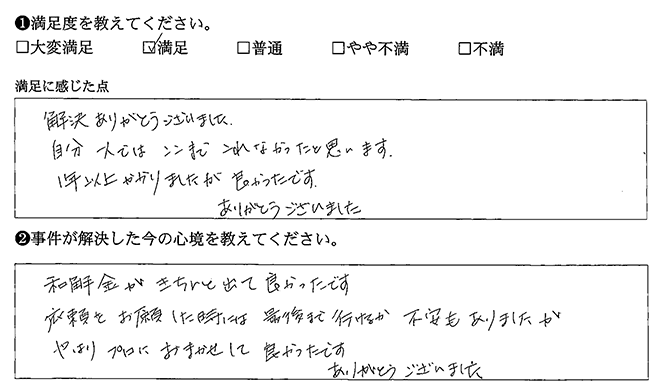 ❶満足度を教えてください。
□大変満足 ☑満足 □普通 □やや不満 □不満
満足に感じた点
解決ありがとうございました.
自分一人では ココまで これなかったと思います.
1年以上かかりましたが 良かったです.
ありがとうございました
❷事件が解決した今の心境を教えてください。
和解金が きちんと出て良かったです
依頼を お願いした時には 最後まで行けるか 不安もありましたが
やはり プロに おまかせして 良かったです
ありがとうございました